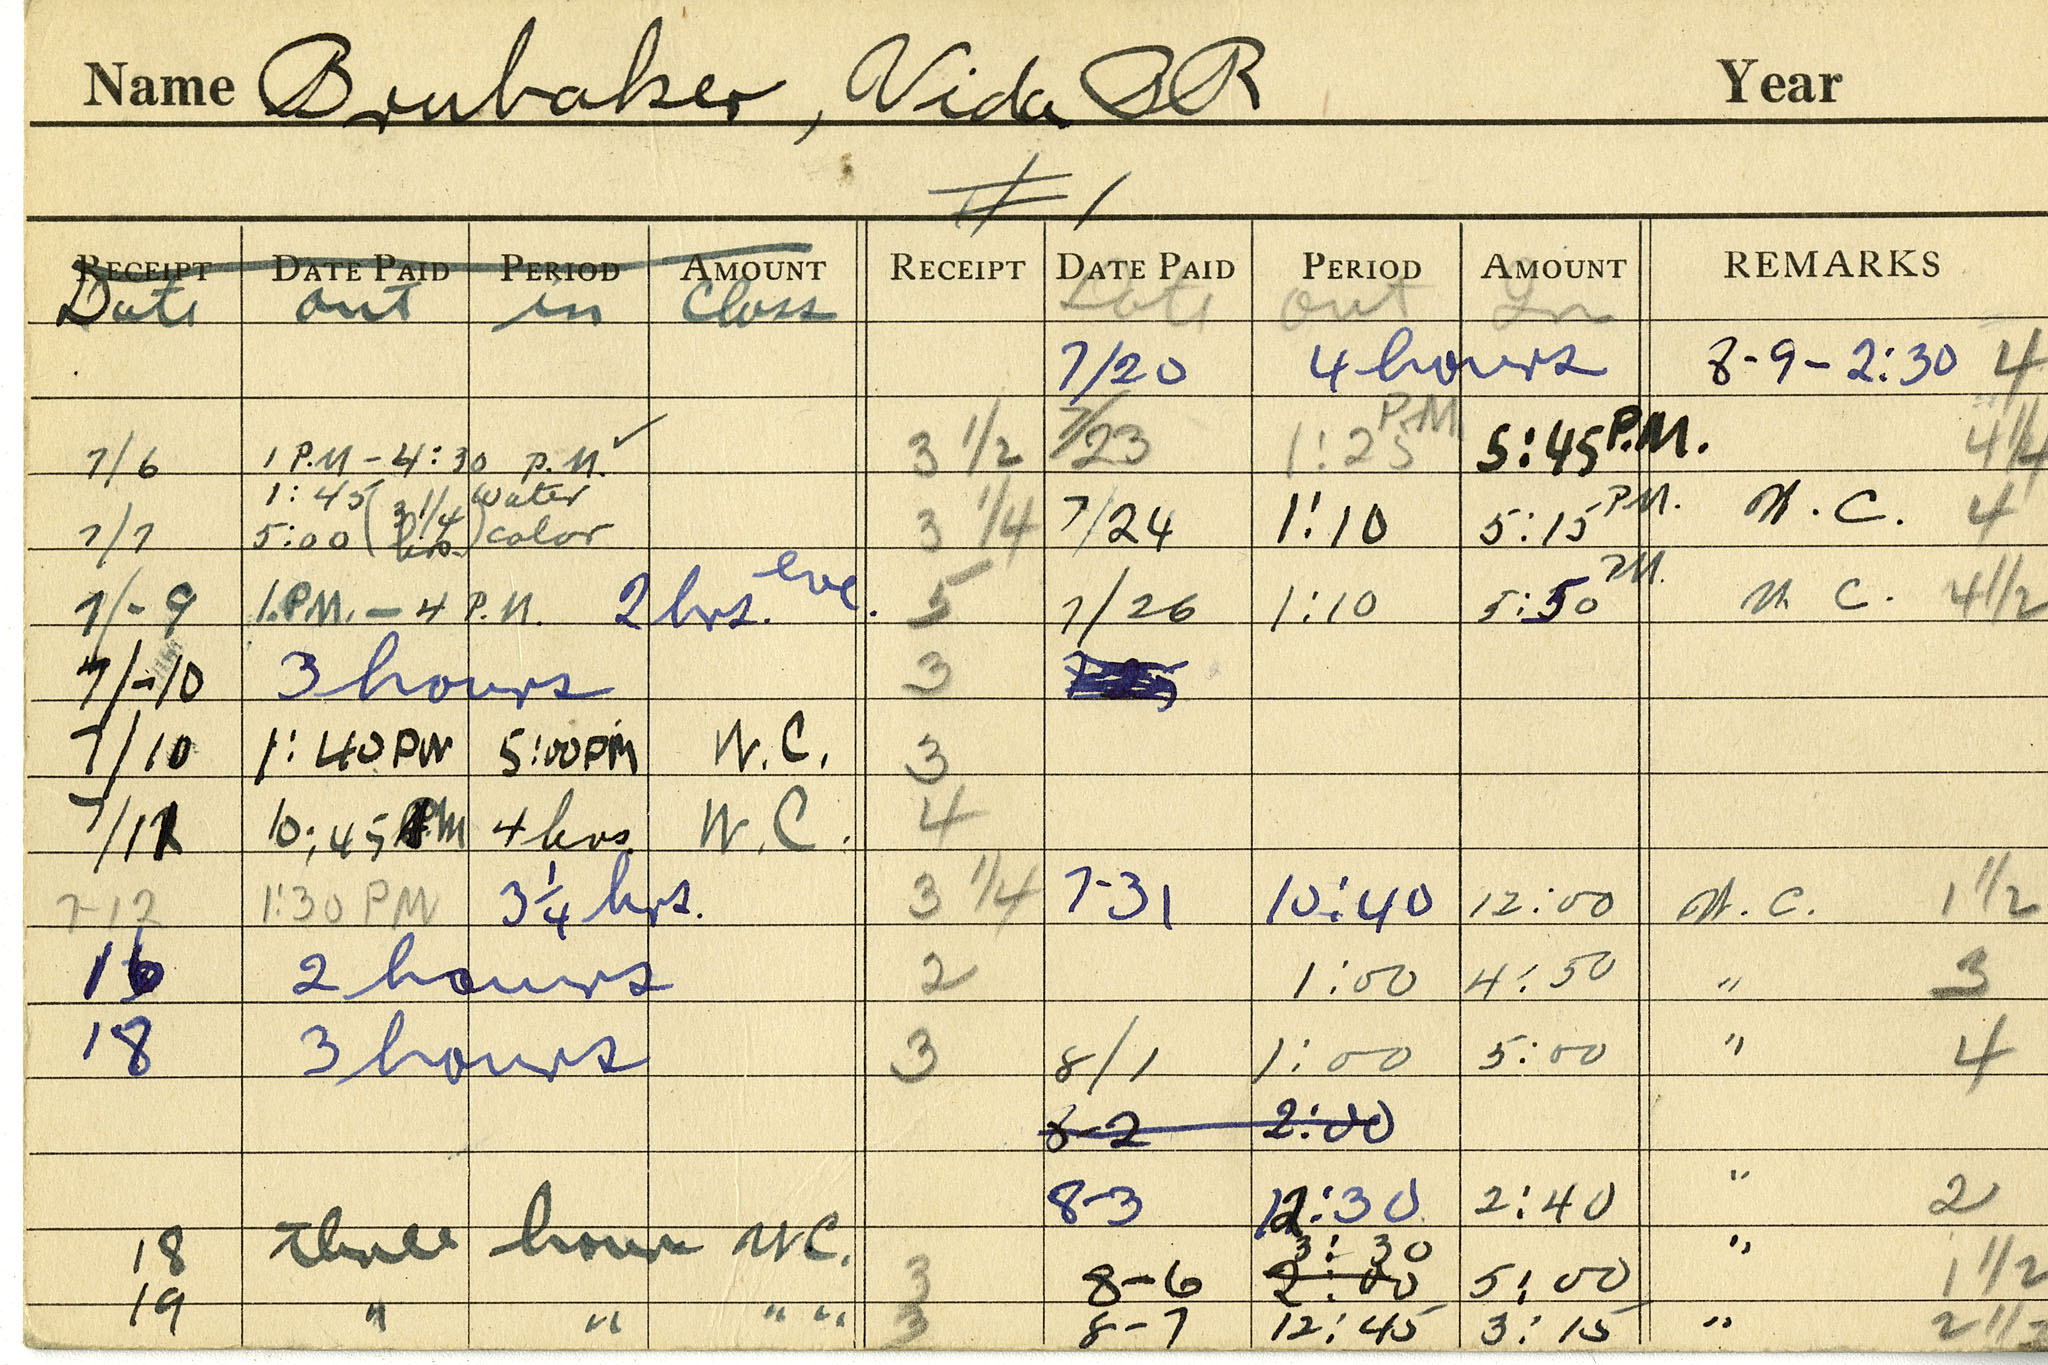 Name Brubaker, Vida BR Year
#1
RECEIPT DATE PAID PERIOD AMOUNT RECEIPT DATE PAID PERIOD AMOUNT REMARKS
Date out in Class Date out In
7/20 4 hours 8-9-2:30 4
7/6 1 P.M - 4:30 P.M. ✓ 3 1/2 7/23 1:25 P.M. 5:45 P.M. 4 1/4
1:45 ( 3 1/4 ) water
7/7 5:00 ( hrs. ) color 3 1/4 7/24 1:10 5:15 P.M. W.C. 4
7/-9 1 P.M. - 4 P.M. 2 hrs. eve. 5 7/26 1:10 5:50 P.M. W.C. 4 1/2
7/-10 3 hours 3
7/10 1:40 PM 5:00 PM W.C. 3
7/11 10:45 4 hrs. W.C. 4
7-12 1:30 PM 3 1/4 hrs. 3 1/4 7-31 10:40 12:00 W.C. 1 1/2
16 2 hours 2 1:00 4:50 " 3
18 3 hours 3 8/1 1:00 5:00 " 4
8-2 2:00
8-3 12:30 2:40 " 2
18 three hours W.C. 3 8-6 2:00 3:30 5:00 " 1 1/2
19 " " " " 3 8-7 12:45 3:15 " 2 1/2